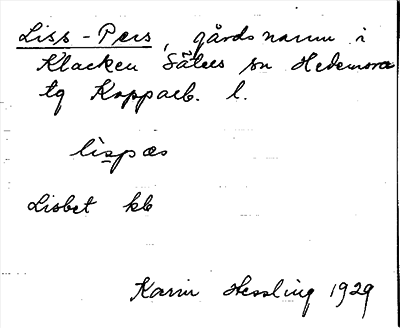 Liss-Pers, gårdsnamn i
Klacken Säters sn Hedemora
tg Kopparb. l.
lispæs
Lisbet kb
Karin Hessling 1929